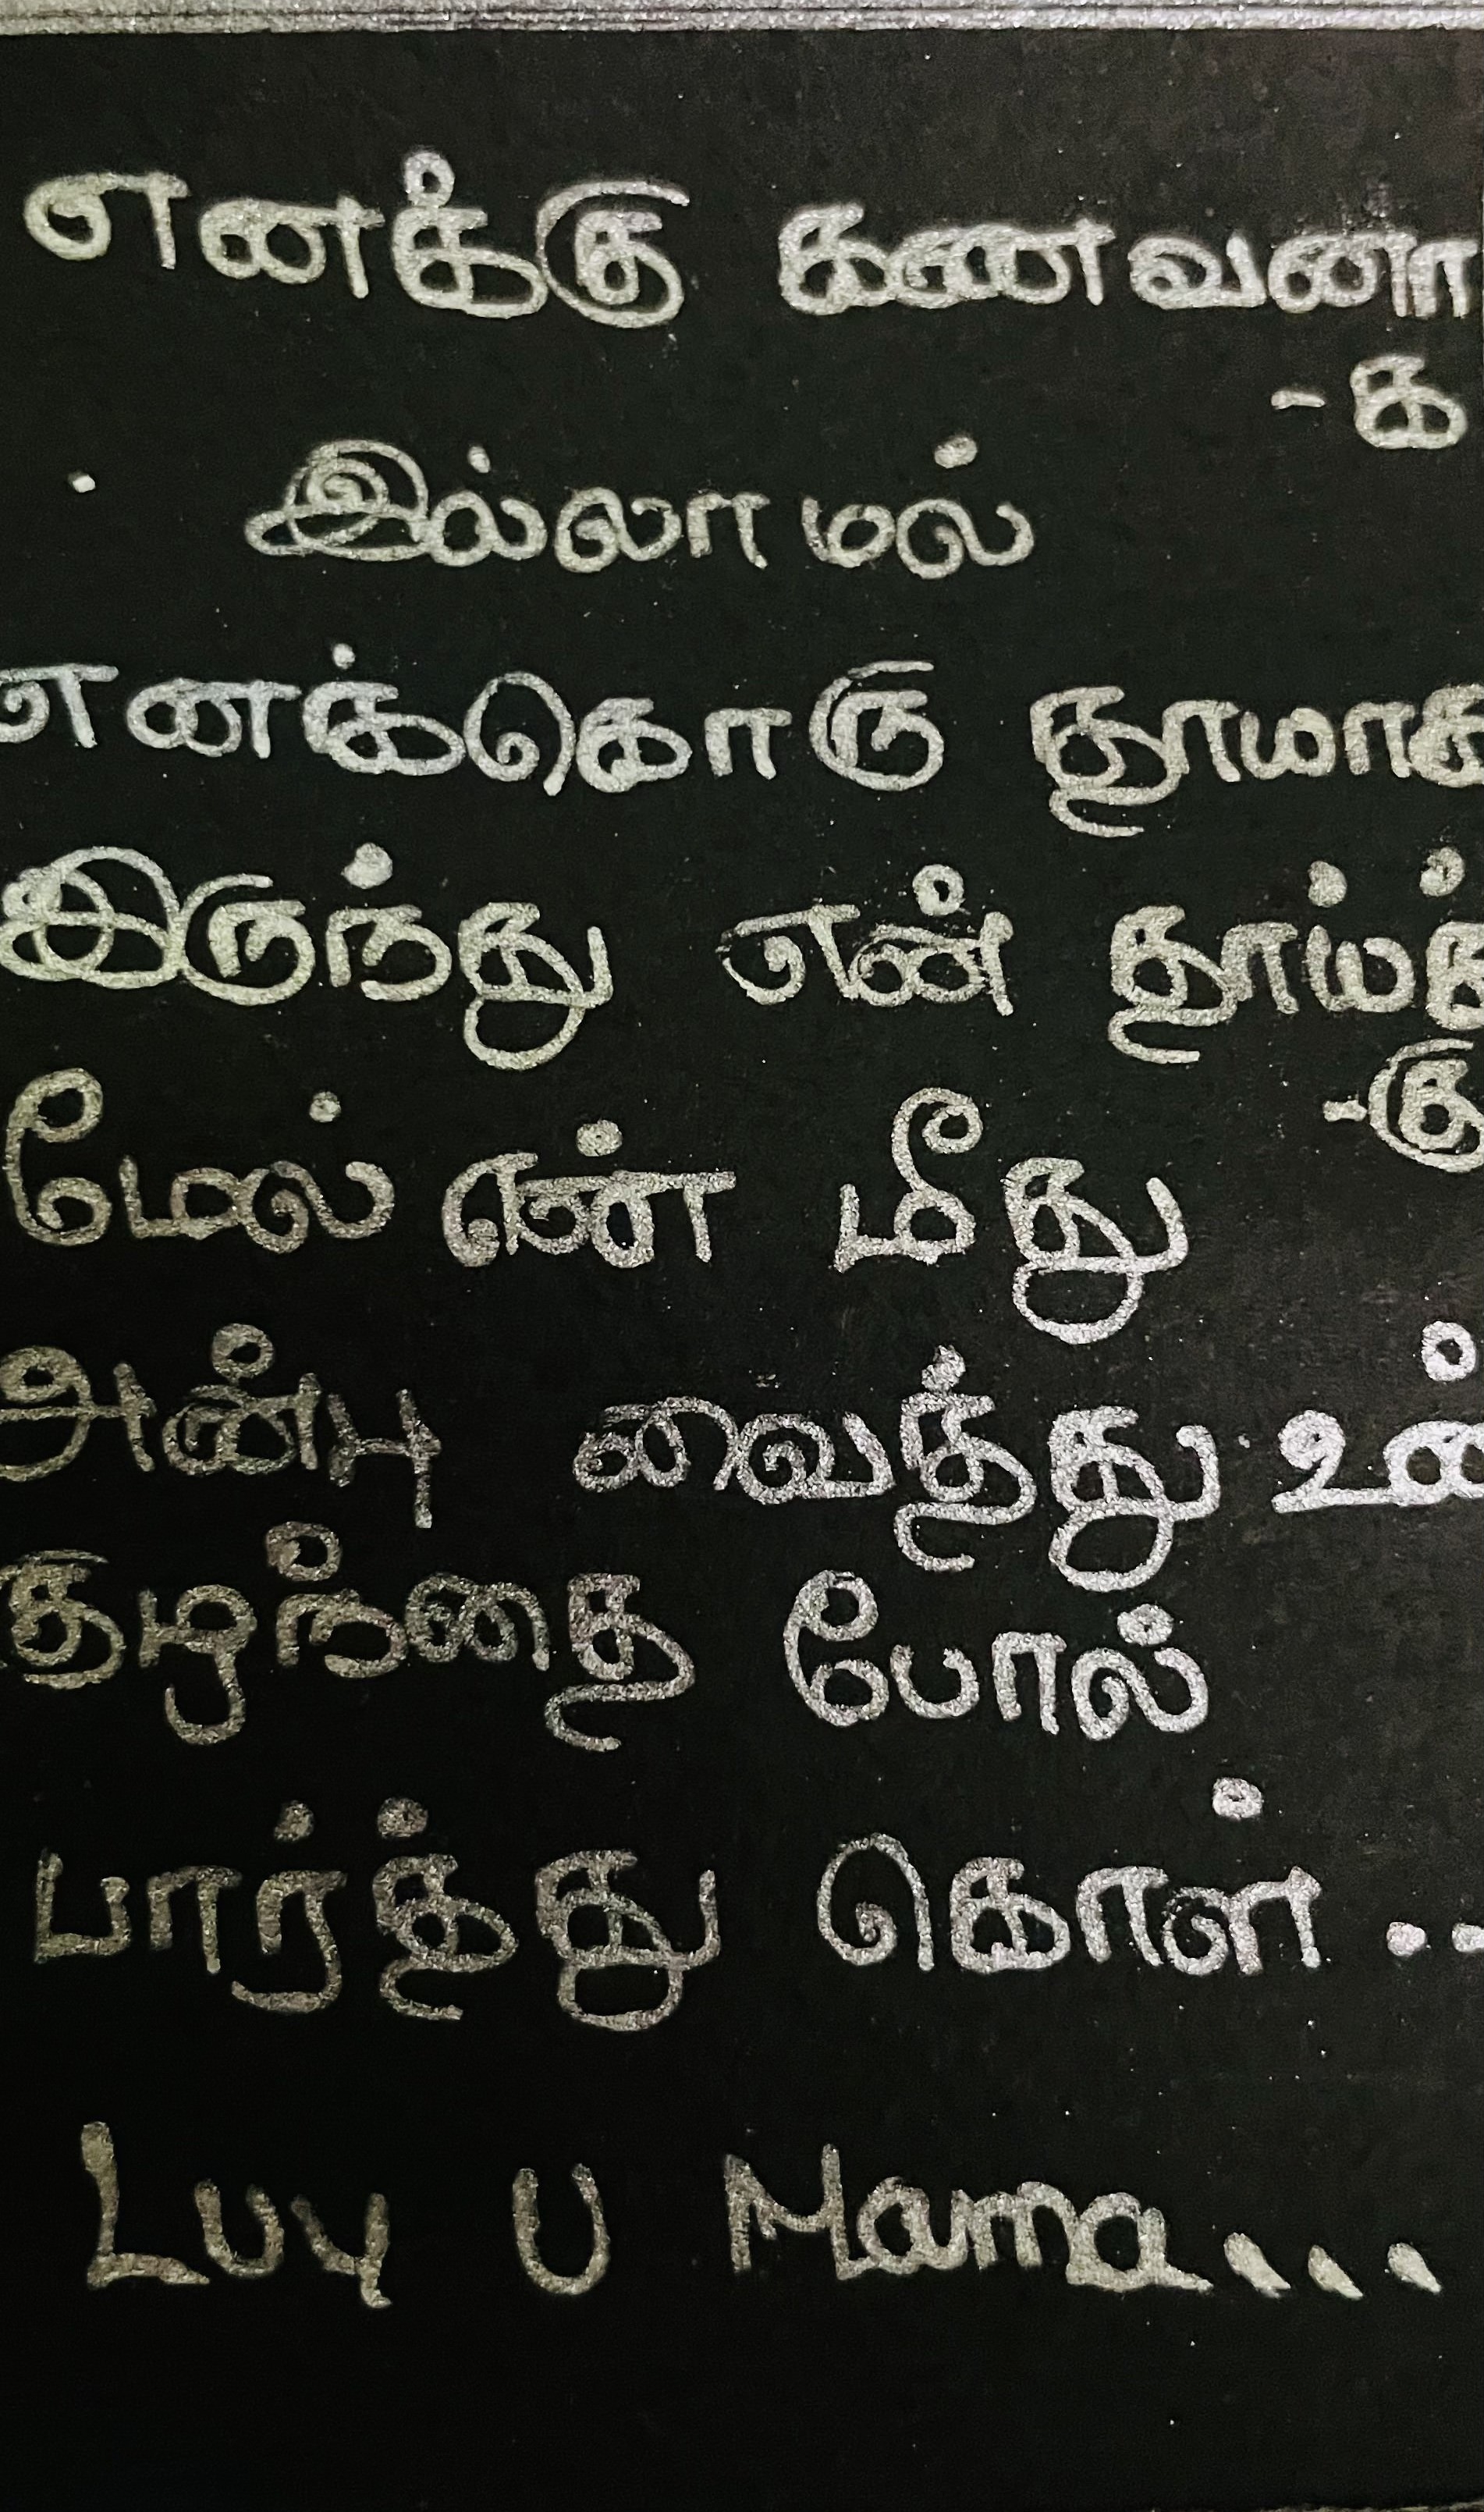 எனக்கு கணவனா
-க
இல்லாமல்
எனக்கொரு தாமாக
இருந்து என் தாய்க்
-கு
மேல் என் மீது
அன்பு வைத்து உன்
குழந்தை போல்
பார்த்து கொள் ..
Luv U Mama...